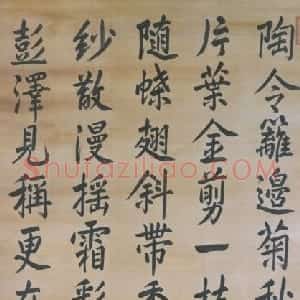 陶令籬邊菊秋
片葉金剪一枝
隨蝶翅斜帶香
紗散漫摇霜彩
彭澤見稱更在
Shufaziliao.com